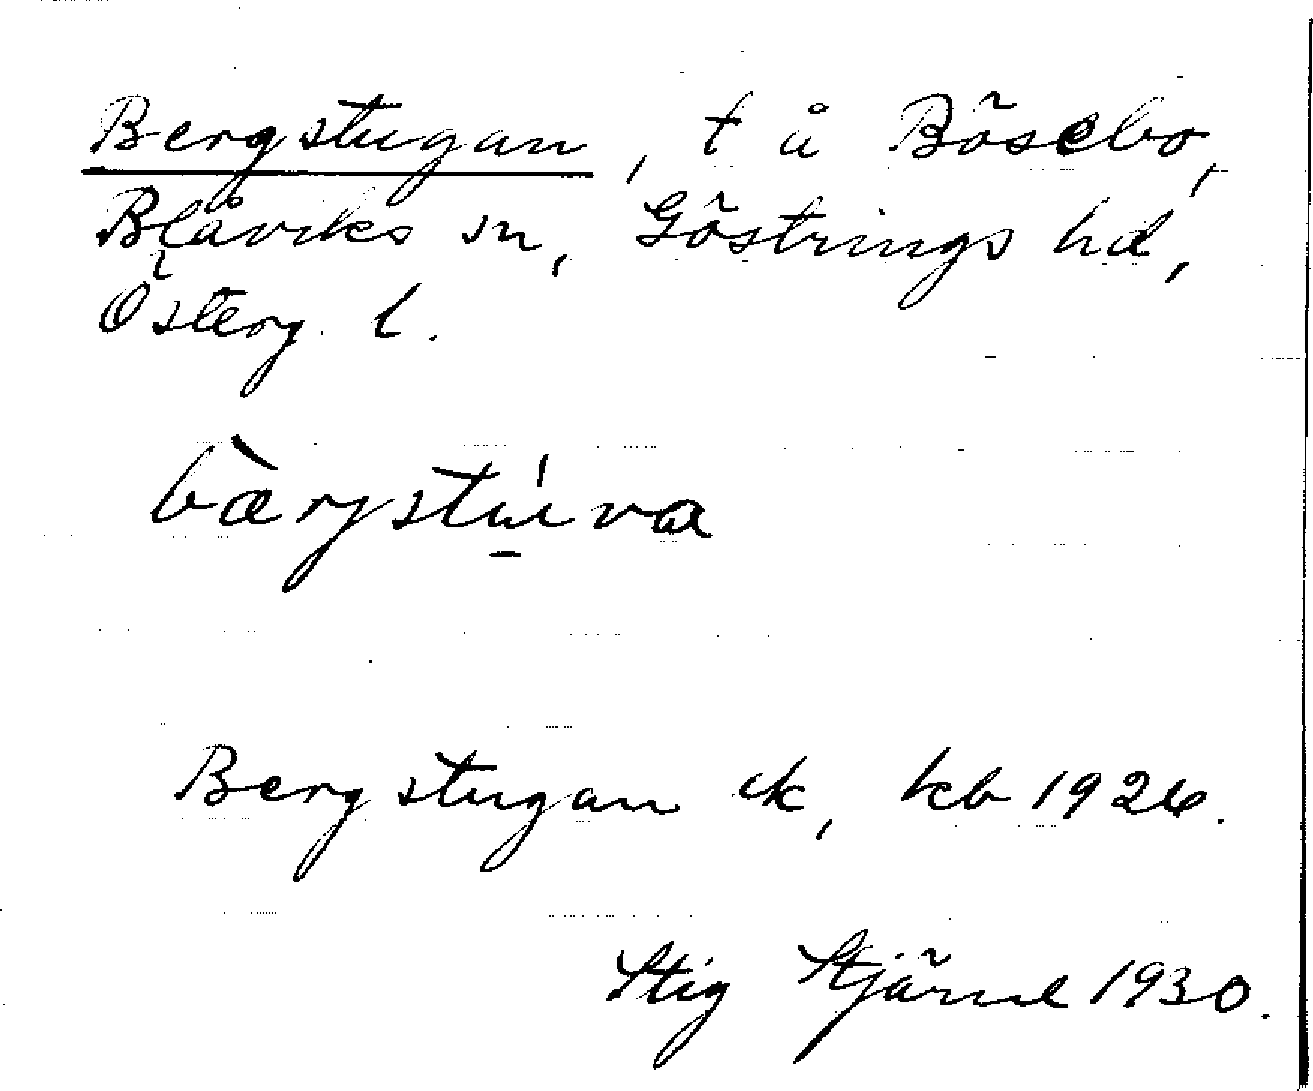 Bergstugan, t å Bösebo,
Blåviks sn, Göstrings hd,
Österg. l.
bæ̀rjstu̱̍va
Bergstugan ek, kb 1926.
Stig Stjärne 1930.